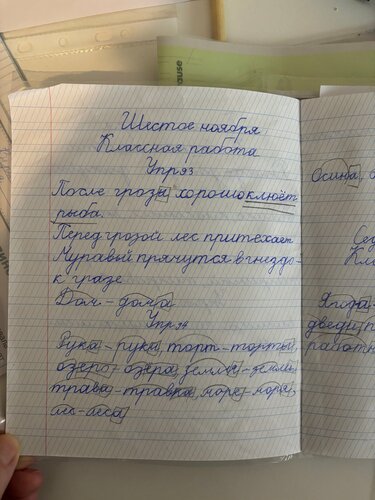 Шестое ноября.
Классная работа
Упр93
После грозы хорошо клюёт
рыба.
Перед грозой лес притехает
Муравьи прячутся в гнездо-
к грозе
Дом - дома
Упр94
Рука - руки, торт - торты,
озеро - озёра, земля - земли,
трава - травка, море - моря,
лес - леса
Осина,
Ягода
двери, п
работн